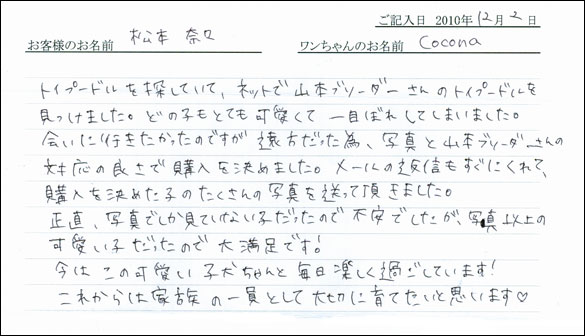 ご記入日 2010年12月2日
お客様のお名前 松本 奈々 ワンちゃんのお名前 Cocona
トイプードルを探していて、ネットで山本ブリーダーさんのトイプードルを
見つけました。どの子もとても可愛くて一目ぼれしてしまいました。
会いに行きたかったのですが遠方だった為、写真と山本ブリーダーさんの
対応の良さで購入を決めました。メールの返信もすぐにくれて、
購入を決めた子のたくさんの写真を送って頂きました。
正直、写真でしか見ていない子だったので不安でしたが、写真以上の
可愛い子だったので大満足です!
今はこの可愛い子犬ちゃんと毎日楽しく過ごしています!
これからは家族の一員として大切に育てたいと思います♡